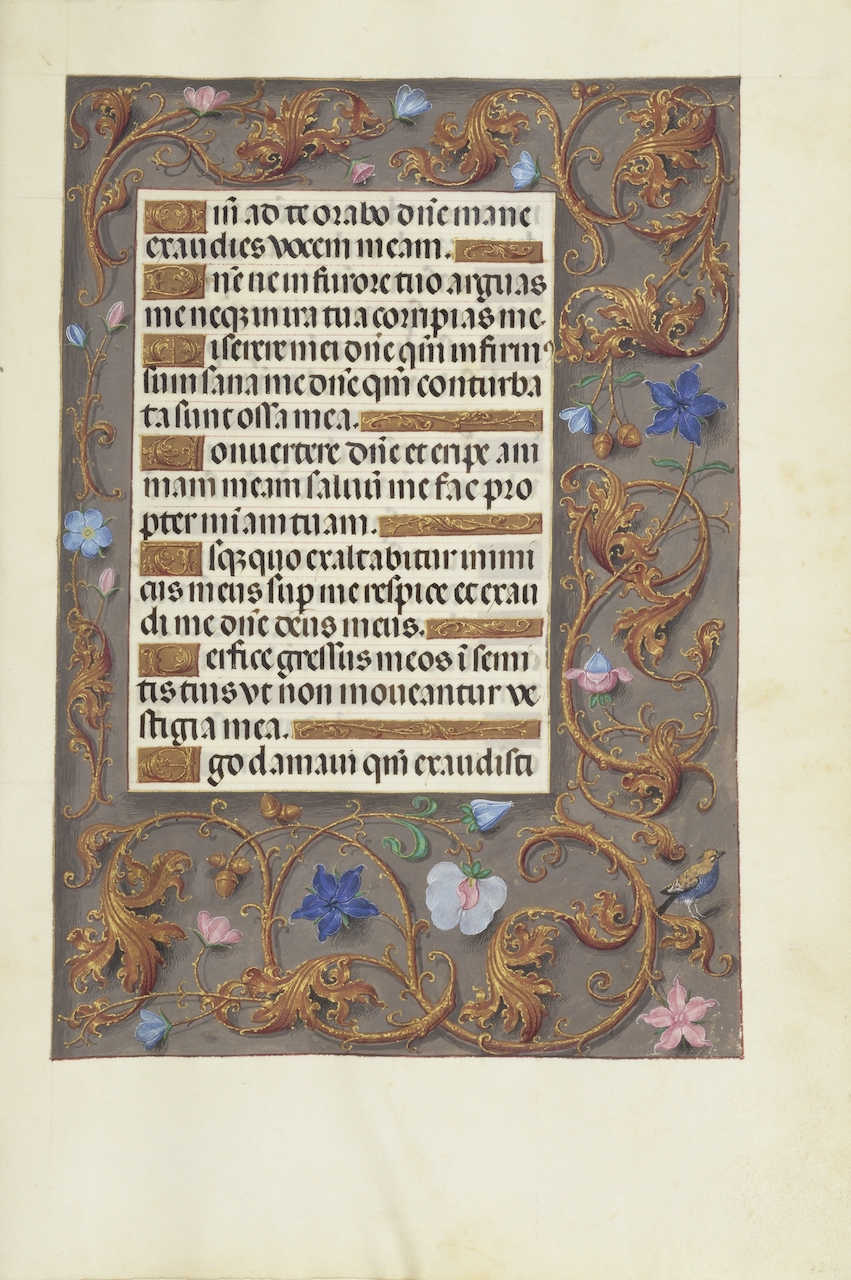 Qm̄ ad te orabo dn̄e mane
exaudies vocem meam.
Dn̄e ne in furore tuo arguas
me neqꝫ in ira tua corripias me.
Miserere mei dn̄e qm̄ infirmꝰ
sum sana me dn̄e qm̄ conturba
ta sunt ossa mea.
Conuertere dn̄e et eripe ani
mam meam saluū me fac pro
pter mīam tuam.
Vsqꝫ quo exaltabitur inimi
cus meus sup me respice et exau
di me dn̄e deus meus.
Perfice gressus meos ī semi
tis tuis vt non moueantur ve
stigia mea.
Ego clamaui qm̄ exaudisti